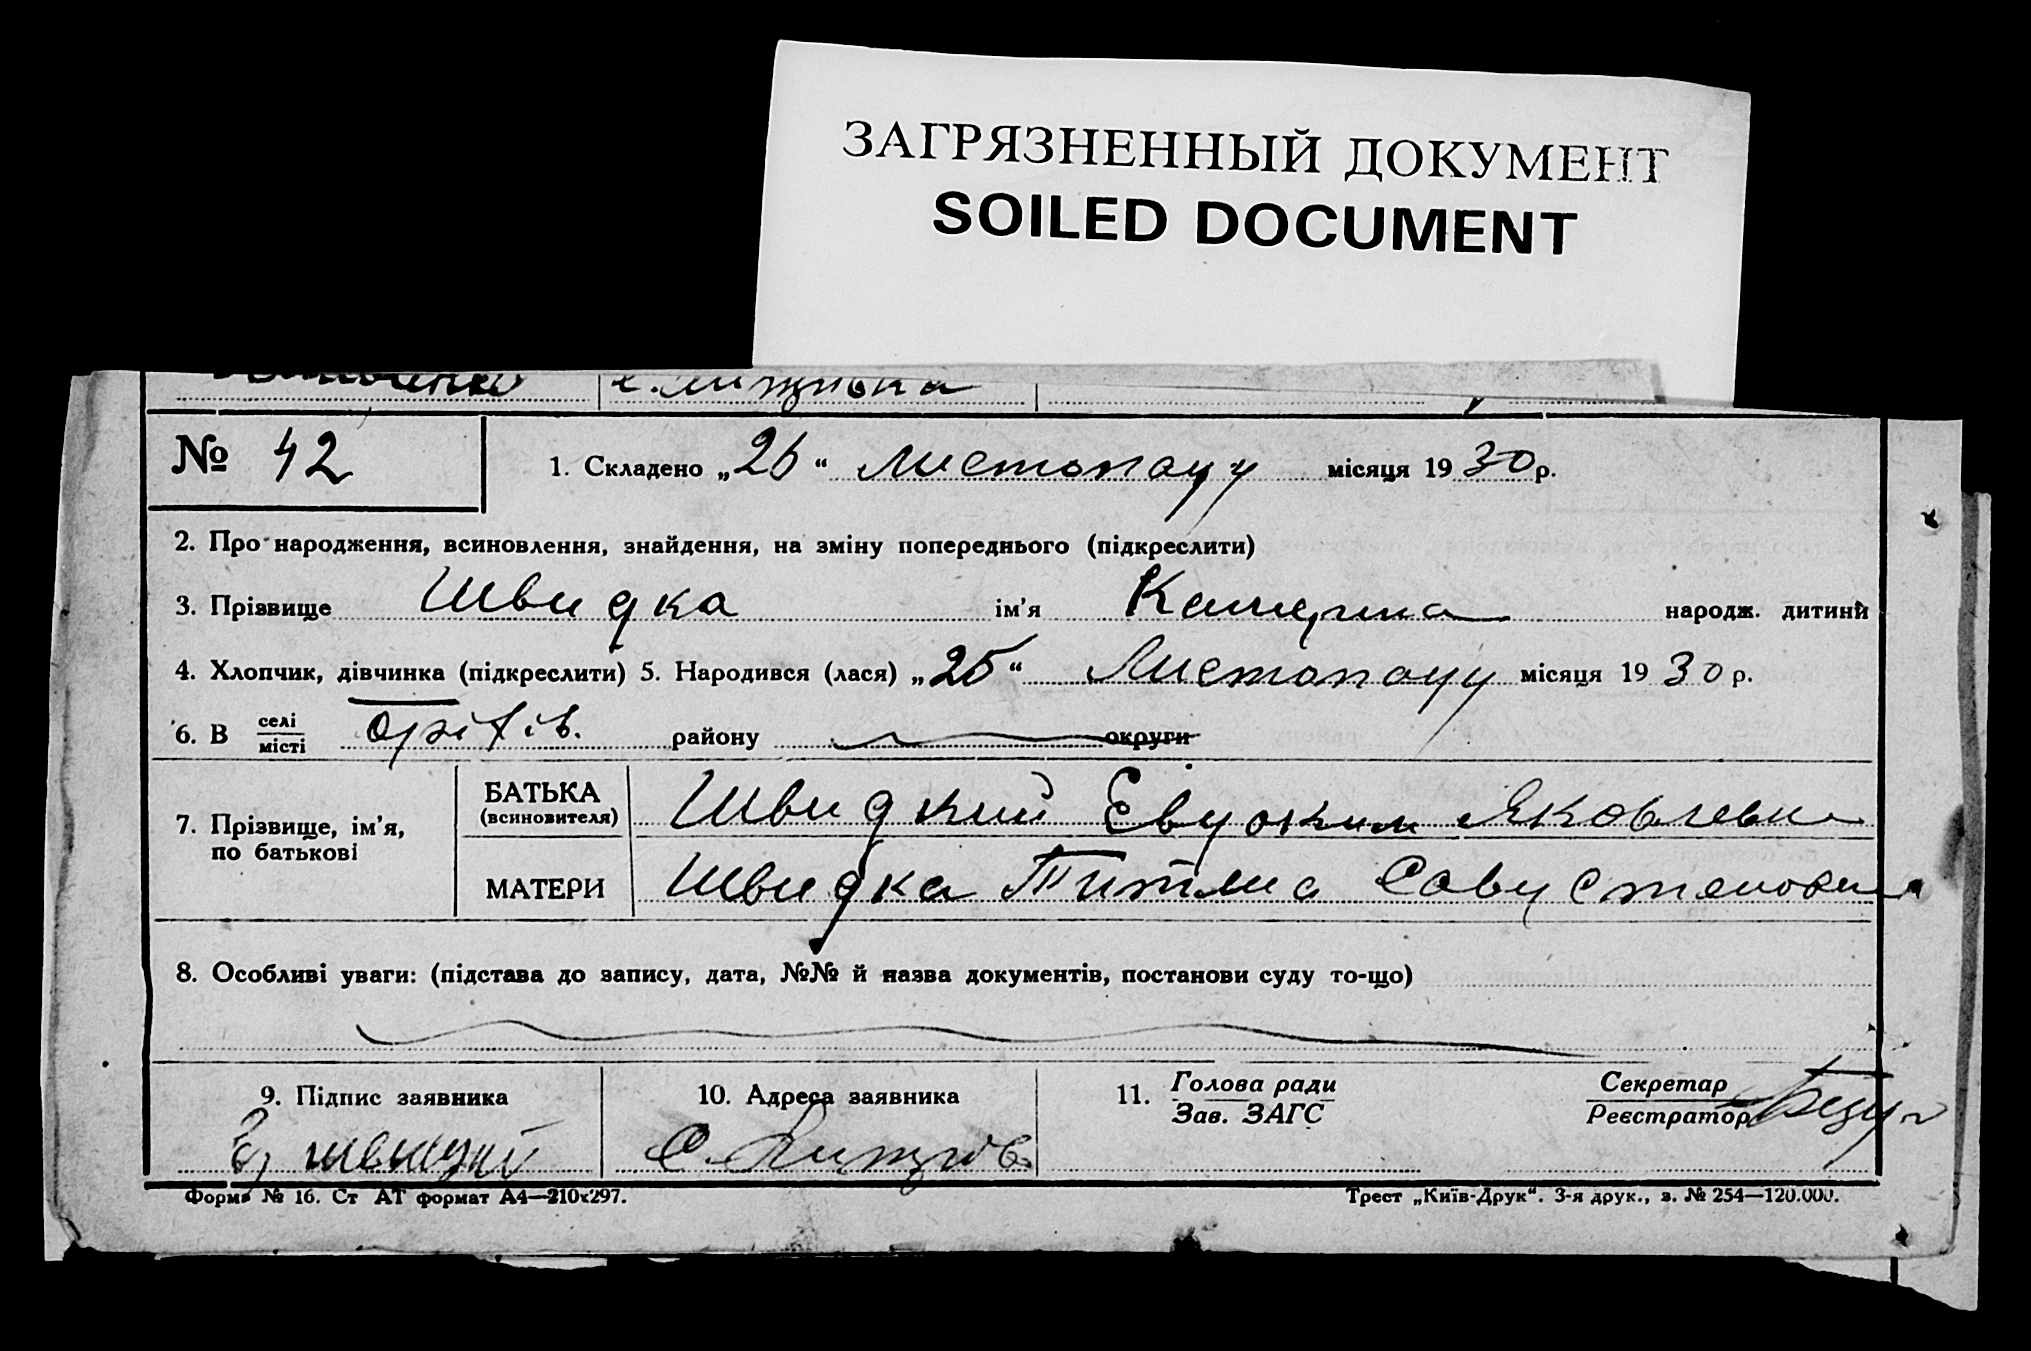 ЗАГРЯЗНЕННЫЙ ДОКУМЕНТ
SOILED DOCUMENT
№ 42
1. Складено „26“ Листопаду місяця 1930р.
2. Про народження, всиновлення, знайдення, на зміну попереднього (підкреслити)
3. Прізвище Швидка ім’я народж. дитини
4. Хлопчик, дівчинка (підкреслити) 5. Народився (лася) „25“ Листопаду місяця 1930р.
6. В селі/місті району округи
7. Прізвище, ім’я, по батькові
БАТЬКА (всиновителя) Швидкий Євдоким Яковлевич
МАТЕРИ Швидка
8. Особливі уваги: (підстава до запису, дата, №№ й назва документів, постанови суду то-що)
9. Підпис заявника
10. Адреса заявника
11. Голова ради
Зав. ЗАГС
Секретар
Реєстратор
Форма № 16. Ст АТ формат А4—210х297.
Трест „Київ-Друк“. 3-я друк., з. № 254—120.000.